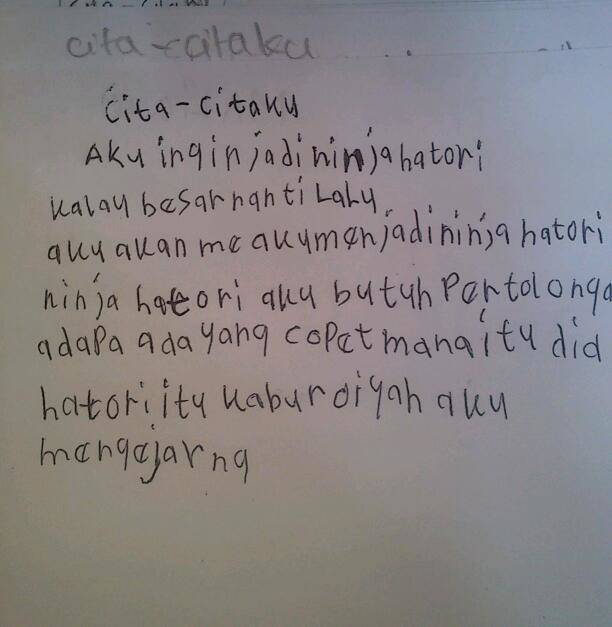 cita-citaku
Cita-citaku
Aku ingin jadi ninja hatori
kalau besar nanti Lalu
aku akan me akumenjadi ninja hatori
ninja hatori aku butuh Pertolonga
adapa ada yang copet mana itu dia
hatori itu kabur oiyah aku
mengejarng